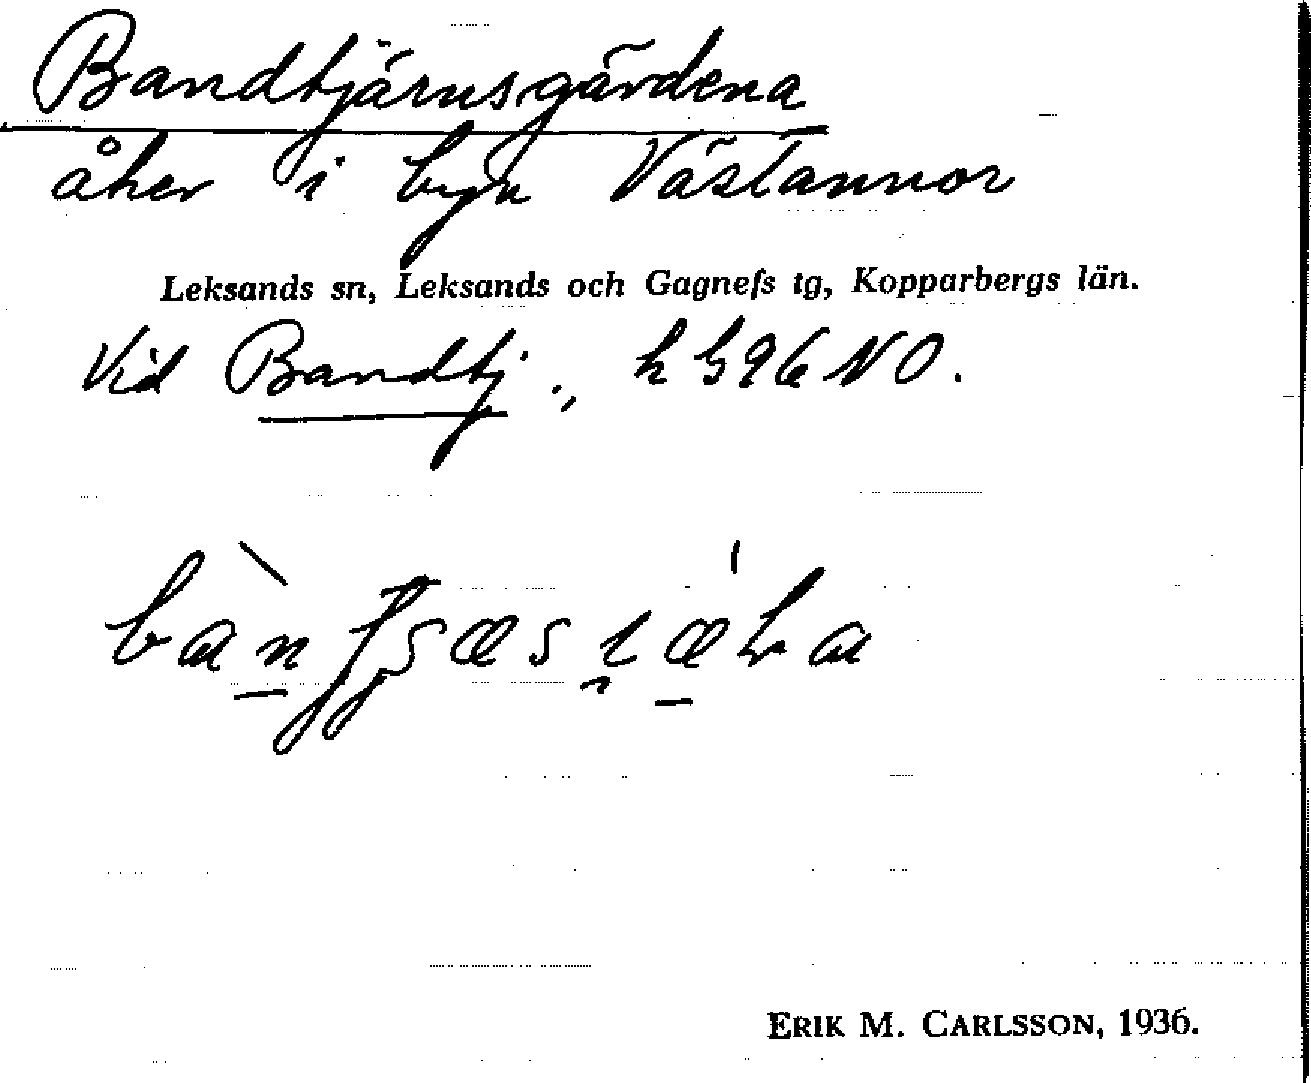 Bandtjärnsgärdena
åker i byn Västannor
Leksands sn, Leksands och Gagnefs tg, Kopparbergs län.
Vid Bandtj., k 596 NO.
ERIK M. CARLSSON, 1936.